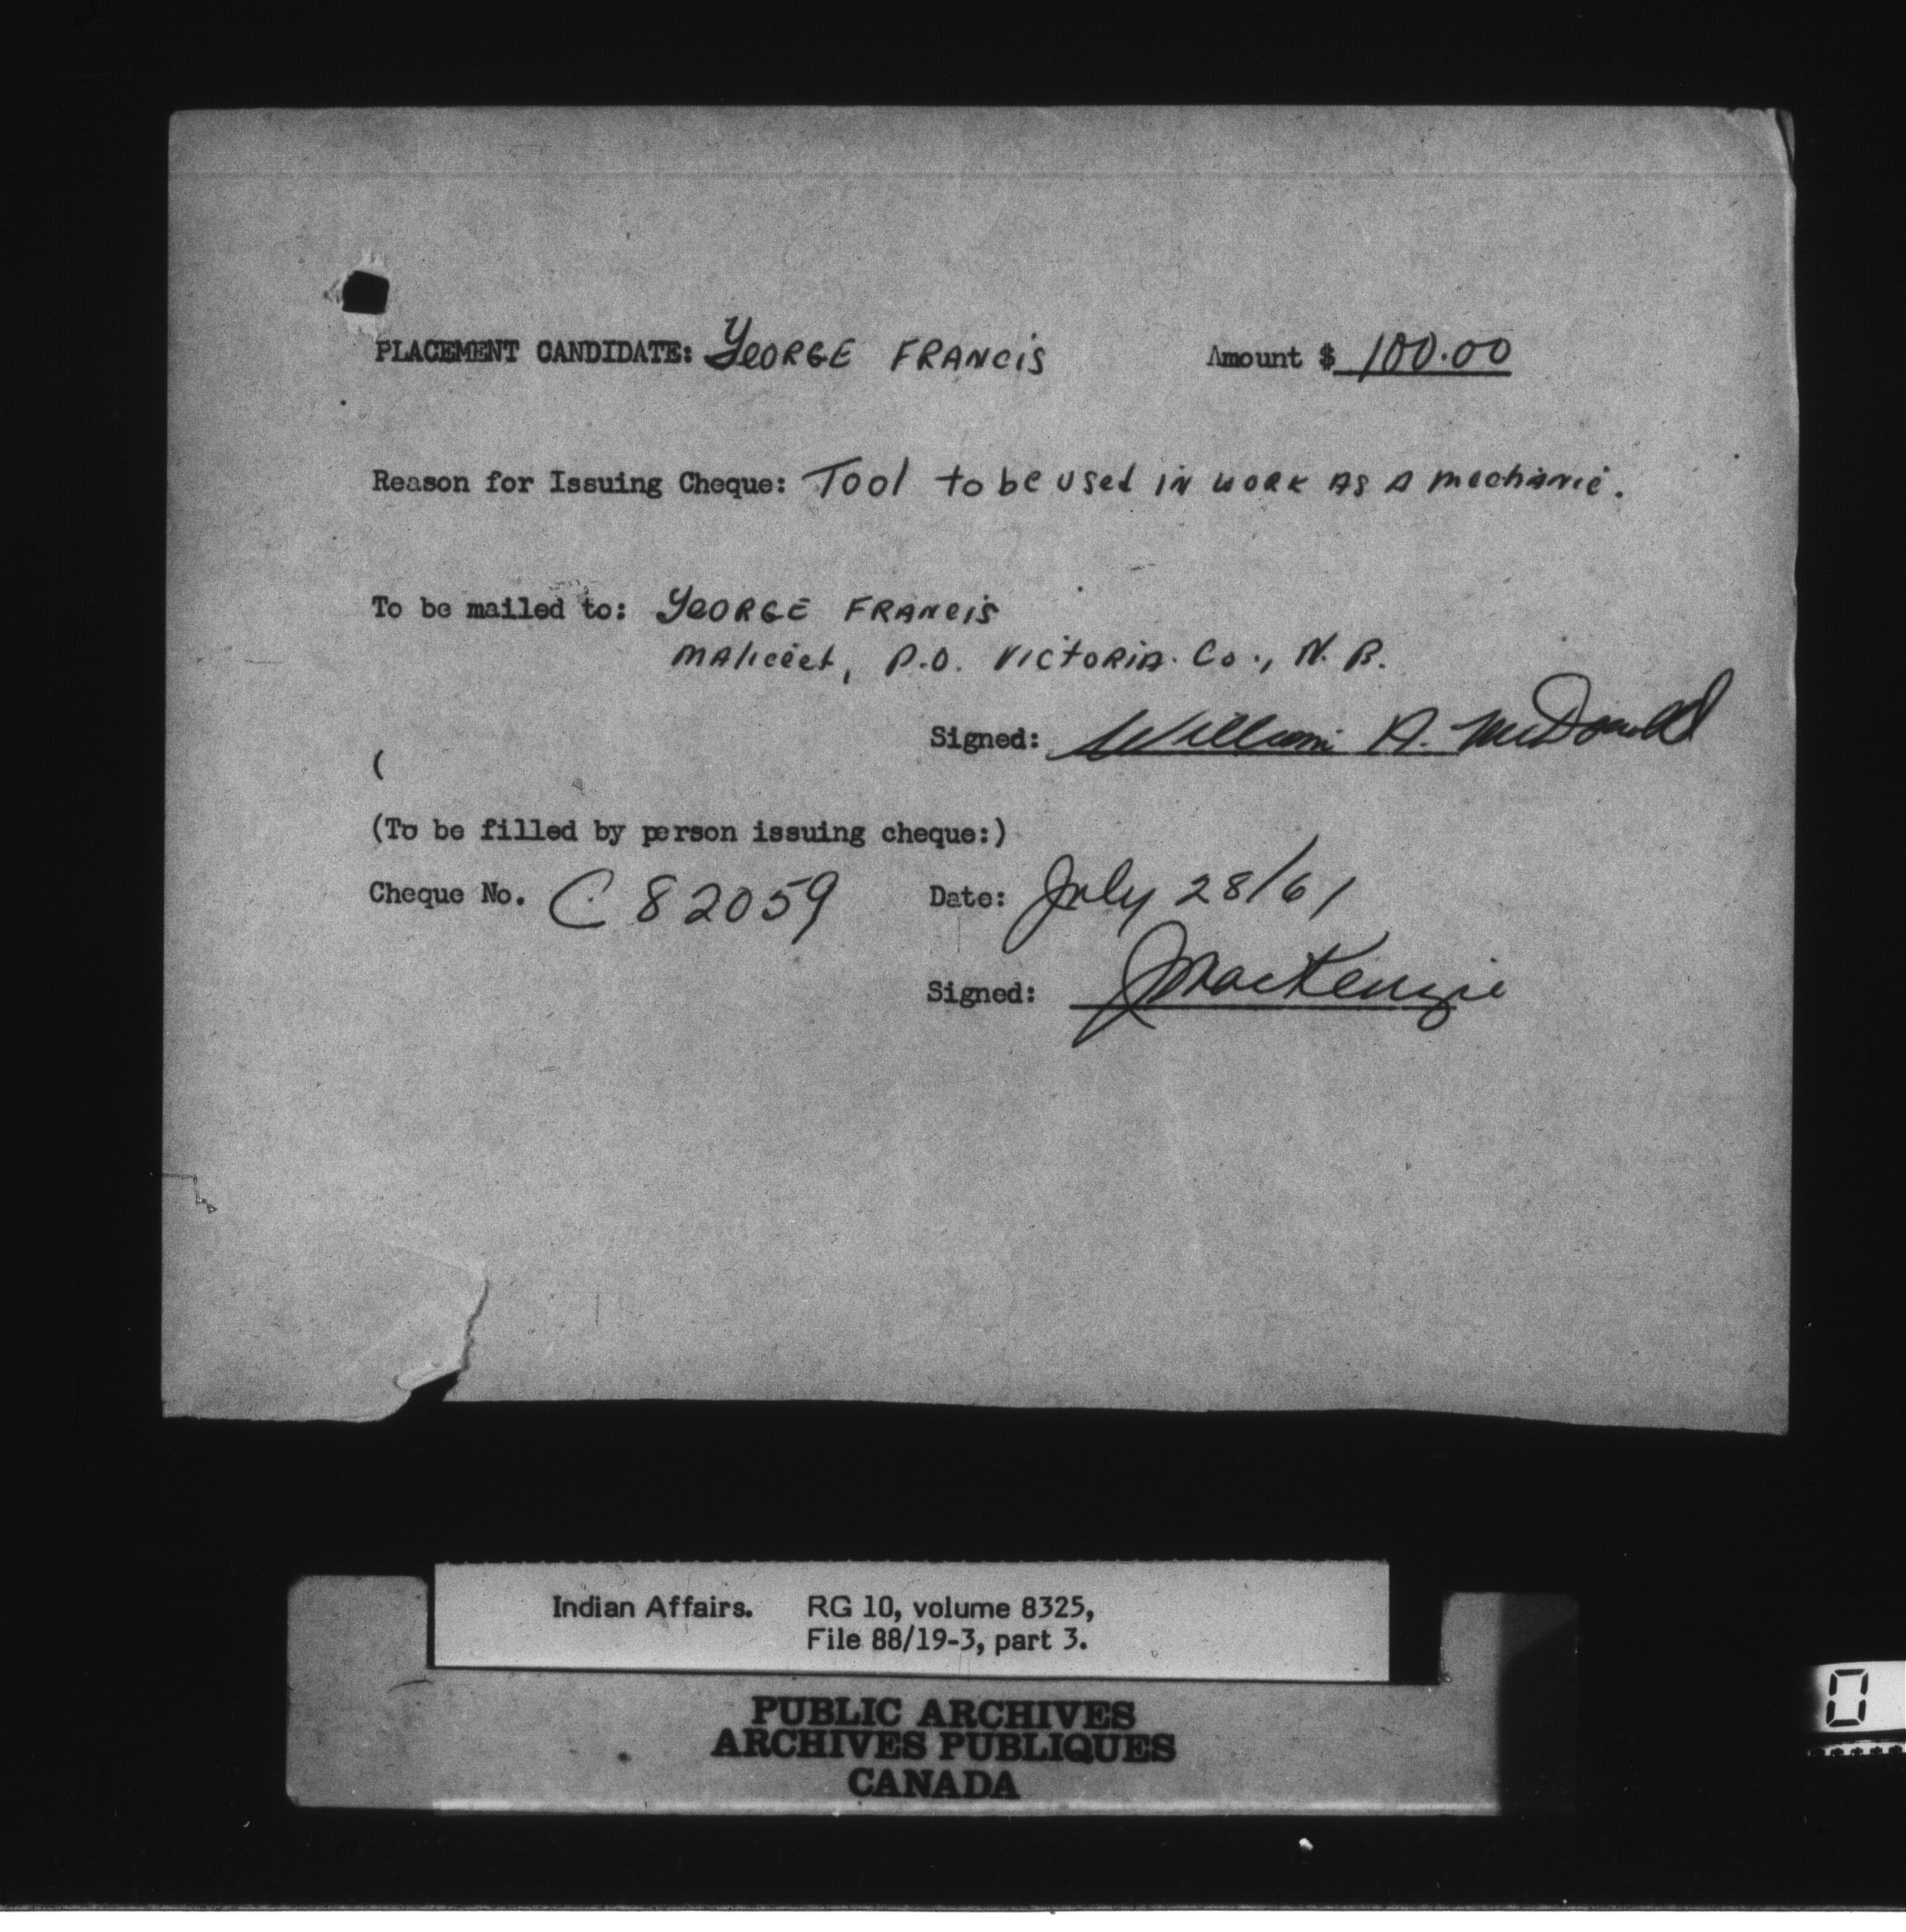 PLACEMENT CANDIDATE: GEORGE FRANCIS Amount $ 100.00
Reason for Issuing Cheque: Tool to be used in work as a mechanic.
To be mailed to: GEORGE FRANCIS
Maliceet, P.O. Victoria Co., N.B.
Signed: William A. McDonald
(
(To be filled by person issuing cheque:)
Cheque No. C 82059 Date: July 28/61
Signed: J MacKenzie
Indian Affairs. RG 10, volume 8325,
File 88/19-3, part 3.
PUBLIC ARCHIVES
ARCHIVES PUBLIQUES
CANADA
0